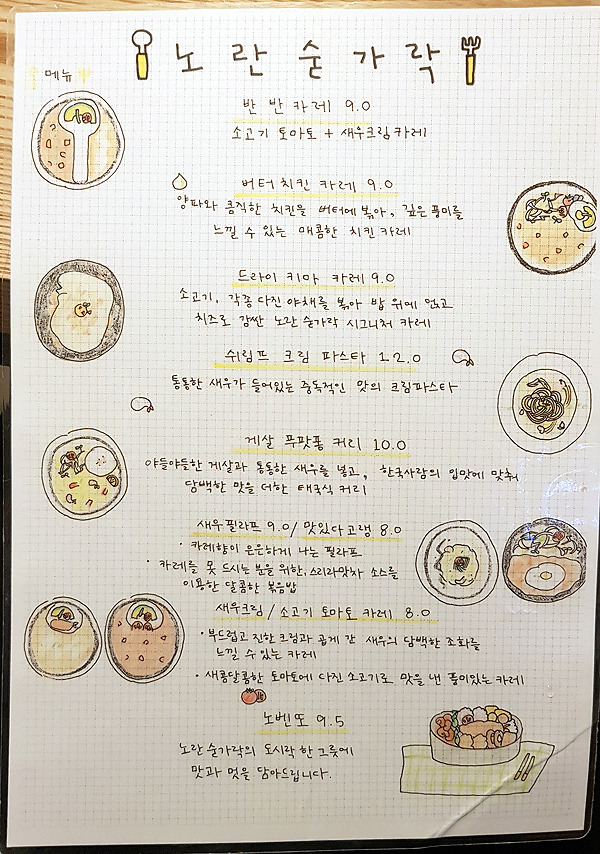 노란숟가락
메뉴
반반카레 9.0
소고기 토마토 + 새우크림카레
버터치킨 카레 9.0
양파와 큼직한 치킨을 버터에 볶아, 깊은 풍미를
느낄 수 있는 매콤한 치킨카레
드라이 키마 카레 9.0
소고기, 각종 다진 야채를 볶아 밥 위에 얹고
치즈로 감싼 노란 숟가락 시그니처 카레
쉬림프 크림 파스타 12.0
통통한 새우가 들어있는 중독적인 맛의 크림파스타
게살 푸팟퐁 커리 10.0
야들야들한 게살과 통통한 새우를 넣고, 한국사람의 입맛에 맞춰
담백한 맛을 더한 태국식 커리
새우필라프 9.0 / 맛있다고랭 8.0
· 카레향이 은은하게 나는 필라프
· 카레를 못 드시는 분을 위한, 스리라맛차 소스를
이용한 달콤한 볶음밥
새우크림 / 소고기 토마토 카레 8.0
· 부드럽고 진한 크림과 곱게 간 새우의 담백한 조화를
느낄 수 있는 카레
· 새콤달콤한 토마토에 다진 소고기로 맛을 낸 풍미있는 카레
노벤또 9.5
노란숟가락의 도시락 한 그릇에
맛과 멋을 담아드립니다.